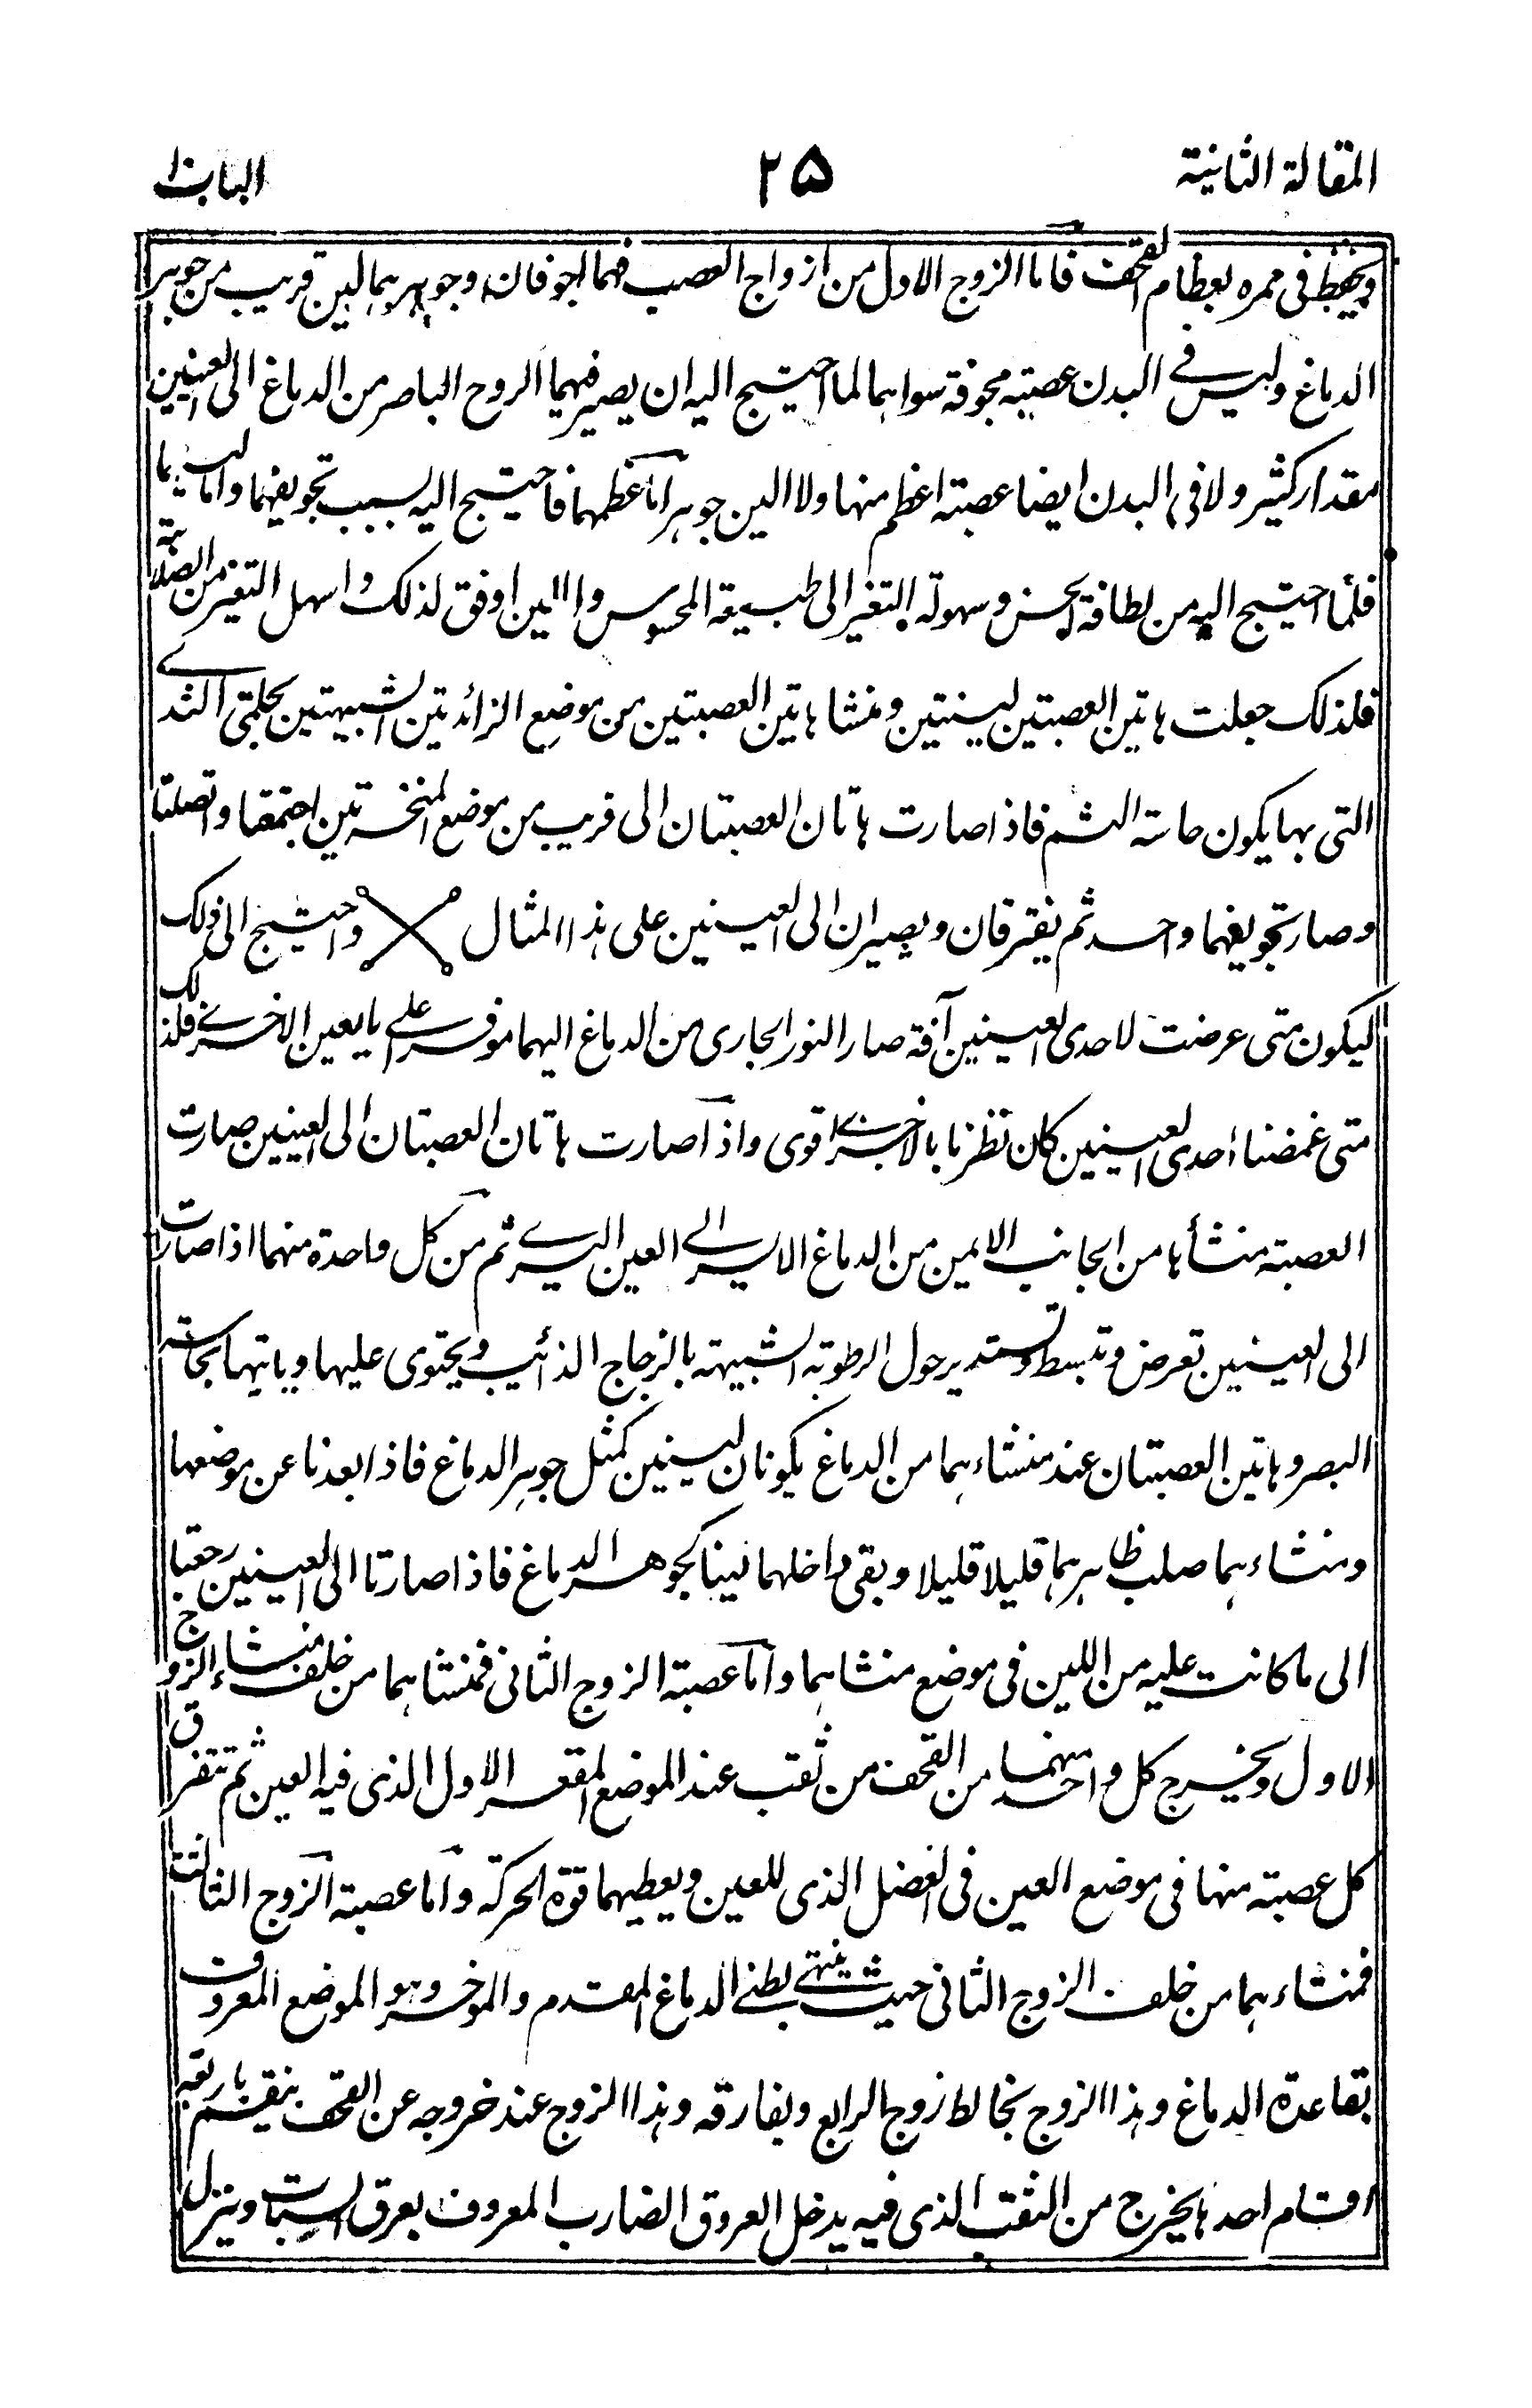 المقالة الثانية ٢٥ الباب ١٠
ويحفظ فى ممره بعظام القحف فاما الزوج الاول من ازواج العصب فهما اجوفان وجوهرهما لين قريب من جوهر
الدماغ وليس فى البدن عصبته مجوفة سواهما لما احتيج اليه ان يصير فيهما الروح الباصر من الدماغ الى العينين
مقدار كثير ولا فى البدن ايضا عصبته اعظم منها ولا الين جوهرا اما عظمهما فاحتيج اليه بسبب تجويفهما واما لينهما
فلما احتيج اليه من لطافة الحس وسهولة التغير الى طبيعة المحسوس والين اوفق لذلك واسهل التغير من الصلابة
فلذلك جعلت هاتين العصبتين لينتين ومنشا هاتين العصبتين من موضع الزائدتين الشبيهتين بحلمتى الثدى
التى بها يكون حاسة الشم فاذا صارت هاتان العصبتان الى قريب من موضع المنخرين اجتمعتا واتصلتا
وصار تجويفهما واحد ثم يفترقان ويصيران الى العينين على هذا المثال واحتيج الى ذلك
ليكون متى عرضت لاحدى العينين آفة صار النور الجارى من الدماغ اليهما موفر على العين الاخرى فلذلك
متى غمضنا احدى العينين كان نظرنا بالاخرى اقوى واذا صارت هاتان العصبتان الى العينين صارت
العصبة منشأها من الجانب الايمن من الدماغ الايسر الى العين اليسرى ثم من كل واحدة منهما اذا صارت
الى العينين تعرض وتبسط وتستدير حول الرطوبة الشبيهة بالزجاج الذائب ويحتوى عليها وياتيها بحاسة
البصر وهاتين العصبتان عند منشاءهما من الدماغ يكونان لينين كمثل جوهر الدماغ فاذا بعدنا عن موضعها
ومنشاءهما صلب ظاهرهما قليلا قليلا وبقى داخلهما لينا كجوهر الدماغ فاذا صارتا الى العينين رجعتا
الى ما كانت عليه من اللين فى موضع منشاهما واما عصبة الزوج الثانى فمنشاهما من خلف منشاء الزوج
الاول ويخرج كل واحد منهما من القحف من ثقب عند الموضع المقعر الاول الذى فيه العين ثم تتفرق
كل عصبته منها فى موضع العين فى العضل الذى للعين ويعطيهما قوة الحركة واما عصبة الزوج الثالث
فمنشاءهما من خلف الزوج الثانى حيث ينتهى بطنى الدماغ المقدم والموخر وهو الموضع المعروف
بقاعدة الدماغ وهذا الزوج يخالط زوج الرابع ويفارقه وهذا الزوج عند خروجه عن القحف ينقسم باربعة
اقسام احدها يخرج من الثقب الذى فيه يدخل العروق الضارب المعروف بعرق السبات وينزل